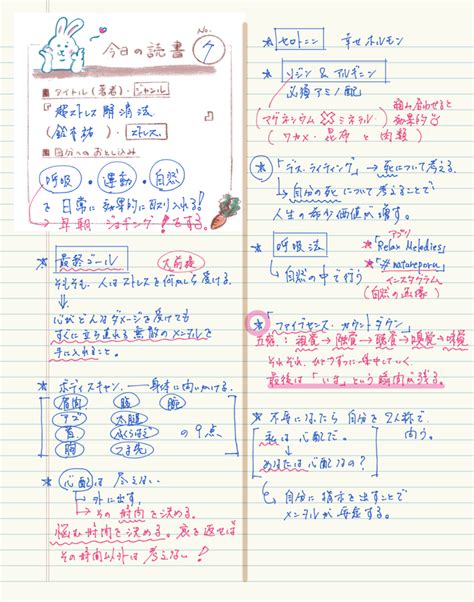 今日の読書
No.
7
タイトル(著者)・ジャンル
「超ストレス解消法」
(鈴木祐)・ストレス
自分へのおとしこみ
呼吸・運動・自然
を日常に効果的に取り入れる!
→ 早朝ジョギング!をする。
* 最終ゴール
大前提
そもそも、人はストレスを何かしら受ける。
↓
心がどんなダメージを受けても
すぐに立ち直れる無敵のメンタルを
手に入れること。
* ボディスキャン. ― 身体に問いかける。
眉間 腹 腕
アゴ 太腿
首 ふくらはぎ
胸 つま先
の9点
* 心配は尽きない
↳ 外に出す。
↳ その時間を決める。
悩む時間を決める。裏を返せば
その時間以外は考えない!
* セロトニン 幸せホルモン
* リジン & アルギニン
必須アミノ酸
組み合わせると
効果的
(マグネシウム × ミネラル)
(ワカメ・昆布と肉類)
* 「デス・ライティング」→ 死について考える。
↳ 自分の死について考えることで
人生の希少価値が増す。
* 呼吸法
アプリ
* 「Relax Melodies」
↳ 自然の中で行う
* 「#natureporn」
インスタグラム
(自然の画像)
* 「ファイブセンス・カウントダウン」
五感:視覚→触覚→聴覚→嗅覚→味覚
それぞれ、ひとつずつに集中していく。
最後は「いま」という瞬間が残る。
* 不安になったら自分を2人称で
問う。
私は心配だ。
↓
あなたは心配なの?
↳ 自分に指示を出すことで
メンタルが安定する。